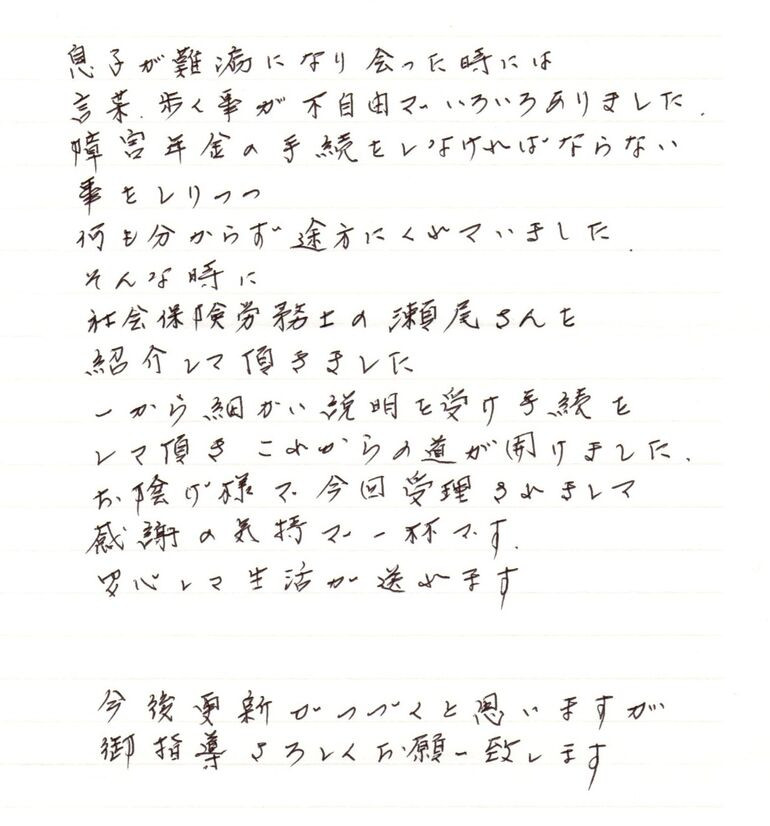 息子が難病になり会った時には
言葉.歩く事が不自由でいろいろありました.
障害年金の手続をしなければならない
事をしりつつ
何も分からず途方にくれていました.
そんな時に
社会保険労務士の瀬尾さんを
紹介して頂きました
一から細かい説明を受け手続を
して頂きこれからの道が開けました.
お陰げ様で今回受理されまして
感謝の気持で一杯です.
安心して生活が送れます
今後更新がつづくと思いますが
御指導よろしくお願い致します